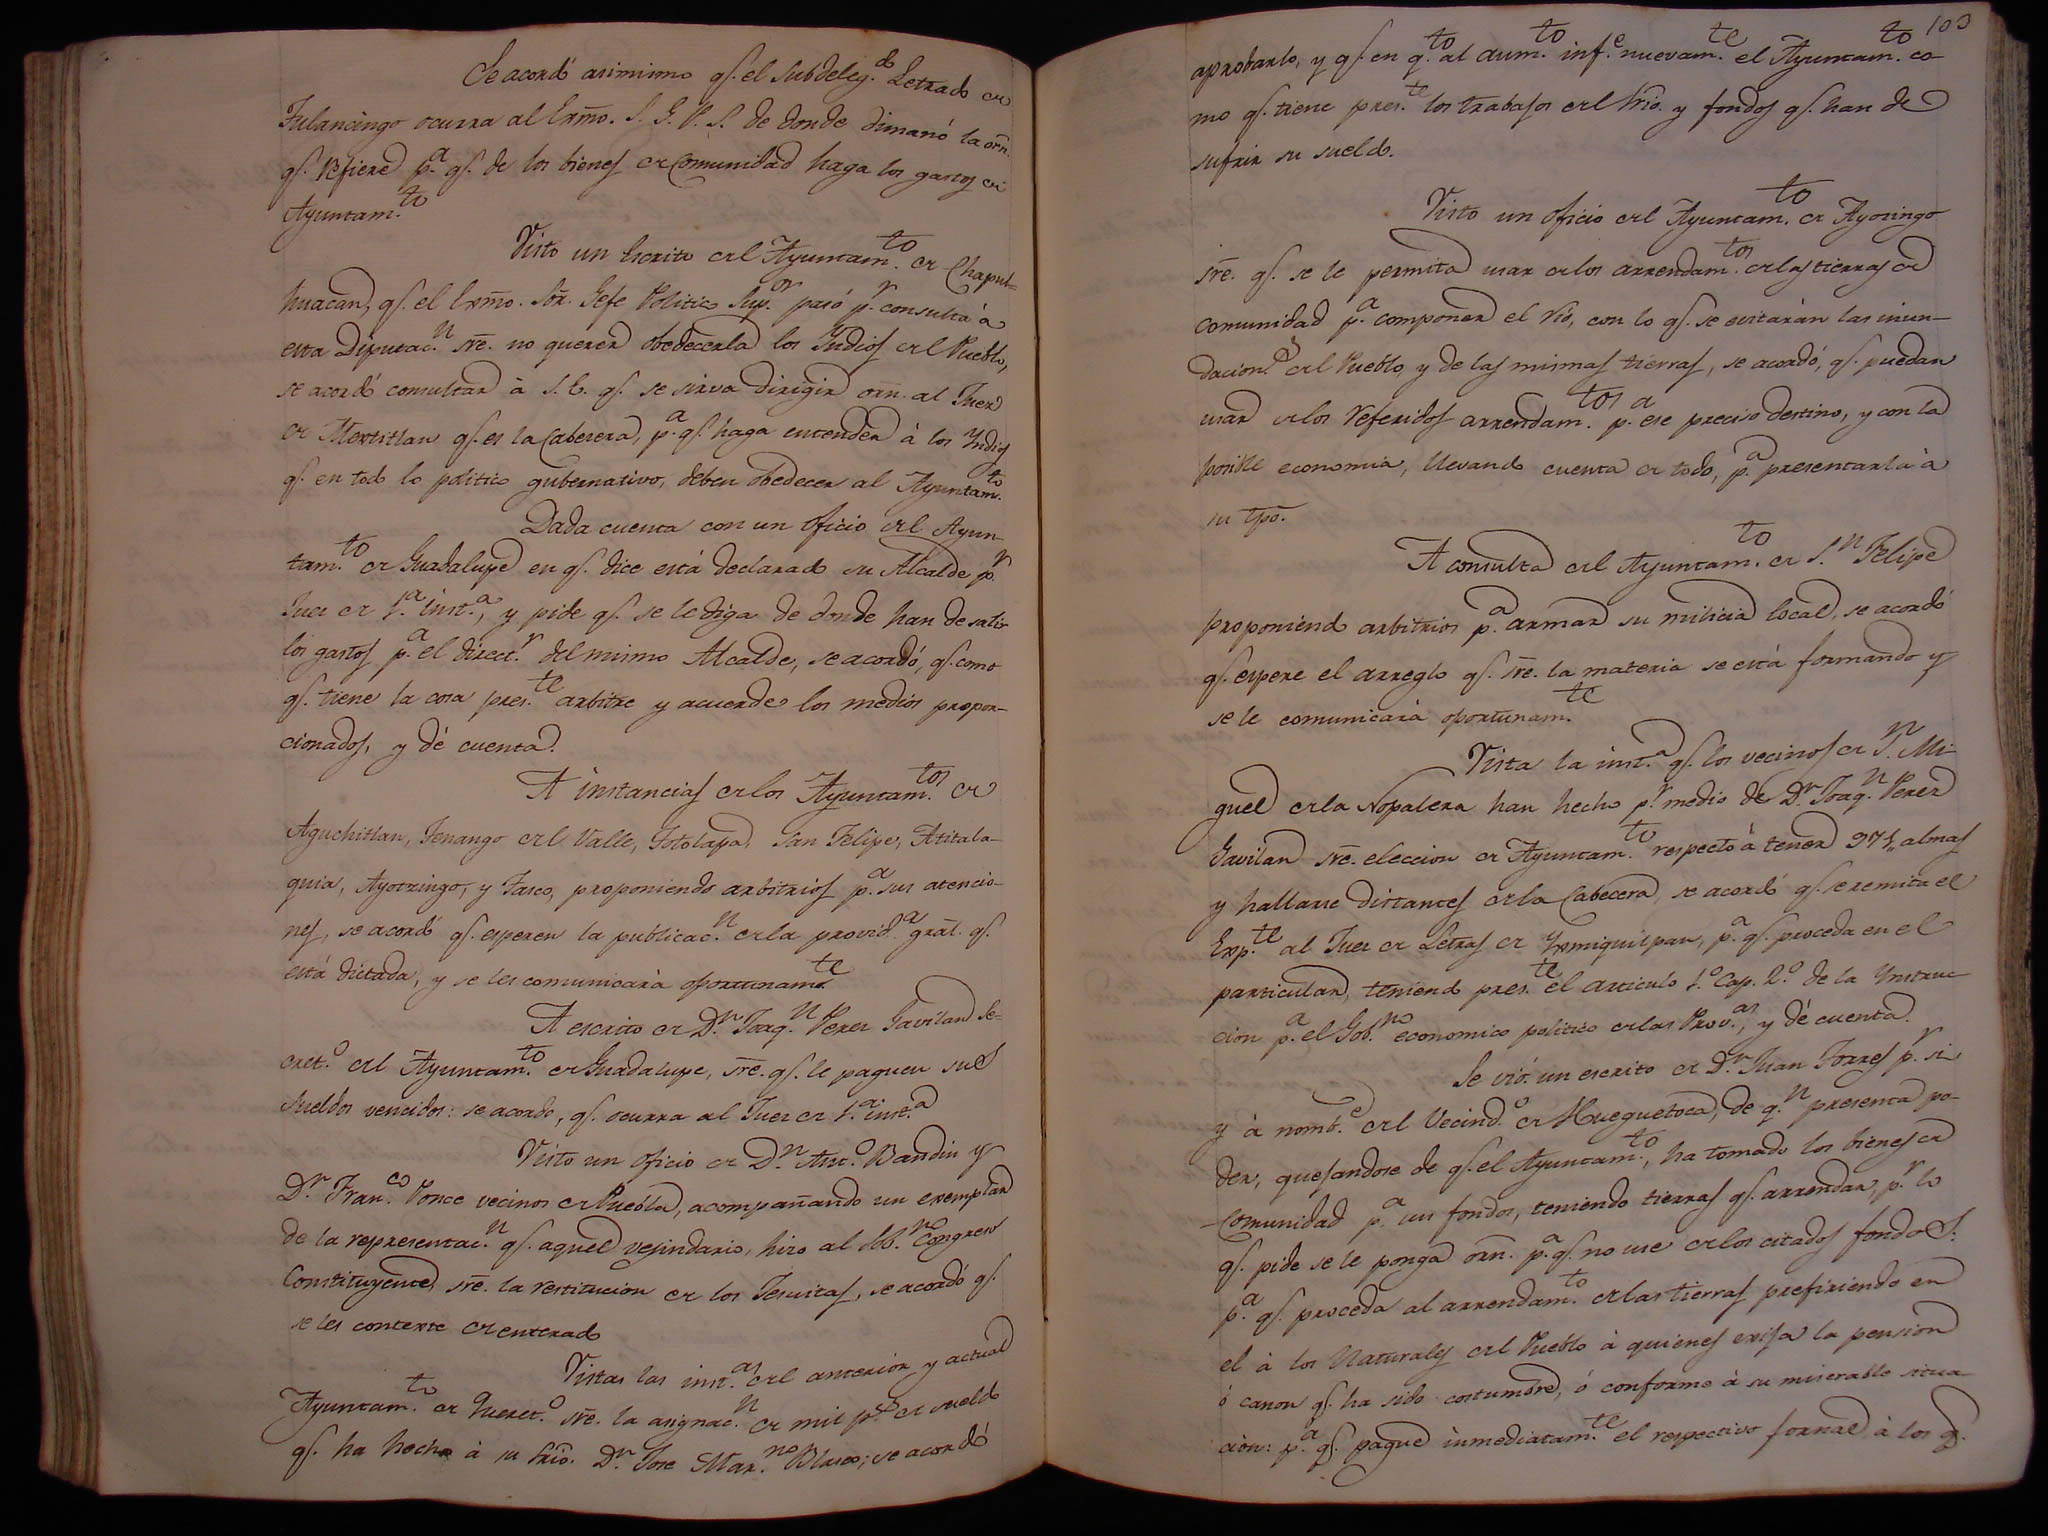 Se acordó asimismo qs. el Subdeleg.do Letrado de
Tulancingo ocurra al Exmo. S. G. P. S. de donde dimanó la orn.
qs. refiere p.a qs. de los bienes de Comunidad haga los gastos de
Ayuntam.to
Visto un Escrito del Ayuntam.to de Chapul-
huacan, qs. el Exmo. Sõr. Gefe Politico Sup.or pasó p.r consulta á
esta Diputac.n sre. no querer obedecerla los Yndios del Pueblo,
se acordó consultar à S. E. qs. se sirva dirigir orn. al Juez
de Mextitlan qs. es la Cabesera, p.a qs. haga entender à los Yndios
qs. en todo lo politico gubernativo, deben obedecer al Ayuntam.to
Dada cuenta con un oficio del Ayun-
tam.to de Guadalupe en qs. dice está declarado su Alcalde p.r
Juez de 1.a inst.a, y pide qs. se le diga de donde han de satis-
los gastos p.a el direct.r del mismo Alcalde, se acordó, qs. como
qs. tiene la cosa pres.te arbitre y acuerde los medios propor-
cionados, y dé cuenta.
A instancias de los Ayuntam.tos de
Aguchitlan, Tenango del Valle, Totolapa, San Felipe, Atitala-
quia, Ayotzingo, y Tasco, proponiendo arbitrios p.a sus atencio-
nes, se acordó qs. esperen la publicac.n de la provid.a gral. qs.
está dictada, y se les comunicarà oportunam.te
A escrito de D.n Joaq.n Perez Gavilan Se-
cret.o del Ayuntam.to de Guadalupe, sre. qs. le paguen sus
sueldos vencidos: se acordo, qs. ocurra al Juez de 1.a inst.a
Visto un oficio de D.n Ant.o Bandin y
D.n Fran.co Ponce vecinos de Puebla, acompañando un exemplar
de la representac.n qs. aquel vesindario, hizo al Sob.no Congreso
Constituyente, sre. la restitucion de los Jesuitas, se acordó qs.
se les conteste de enterado
Vistas las inst.as del anterior y actual
Ayuntam.to de Queret.o sre. la asignac.n de mil p.s de sueldo
qs. ha hecho à su Srio. D.n Jose Mar.no Blasco; se acordó
103
aprobarlo, y qs. en q.to al aum.to inf.e nuevam.te el Ayuntam.to co-
mo qs. tiene pres.te los trabajos del Srio. y fondos qs. han de
sufrir su sueldo.
Visto un oficio del Ayuntam.to de Ayozingo
sre. qs. se le permita usar de los arrendam.tos de las tierras de
comunidad p.a componer el Rio, con lo qs. se evitarán las inun-
dacion.s del Pueblo, y de las mismas tierras, se acordó, qs. puedan
usar de los referidos arrendam.tos p.a ese preciso destino, y con la
posible economia, llevando cuenta de todo, p.a presentarla à
su tpõ.
A consulta del Ayuntam.to de S.n Felipe
proponiend arbitrios p.a armar su milicia local, se acordó
qs. espere el arreglo qs. sre. la materia se está formando y
se le comunicarà oportunam.te
Vista la inst.a qs. los vecinos de S.n Mi-
guel de la Nopalera han hecho p.r medio de D.n Joaq.n Perez
Gavilan sre. eleccion de Ayuntam.to respecto à tener 971,, almas
y hallarse distantes de la Cabecera, se acordó qs. se remita el
Exp.te al Juez de Letras de Yxmiquilpan, p.a qs. proceda en el
particular, teniend pres.te el articulo 1.o Cap. 2.o de la Ynstruc
cion p.a el Gob.no economico politico de las Prov.as, y dé cuenta.
Se vió un escrito de D.n Juan Torres p.r si
y à nomb.e del Vecind.o de Hueguetoca, de q.n presenta po-
der, quejandose de qs. el Ayuntam.to, ha tomado los bienes de
Comunidad p.a sus fondos, teniendo tierras qs. arrendar, p.r lo
qs. pide se le ponga orn. p.a qs. no use de los citados fondos:
p.a qs. proceda al arrendam.to de las tierras prefiriendo en
el à los Naturales del Pueblo à quienes exija la pension
ó canon qs. ha sido costumbre, ó conforme à su miserable situa
cion: p.a qs. pague inmediatam.te el respectivo jornal à los qs.